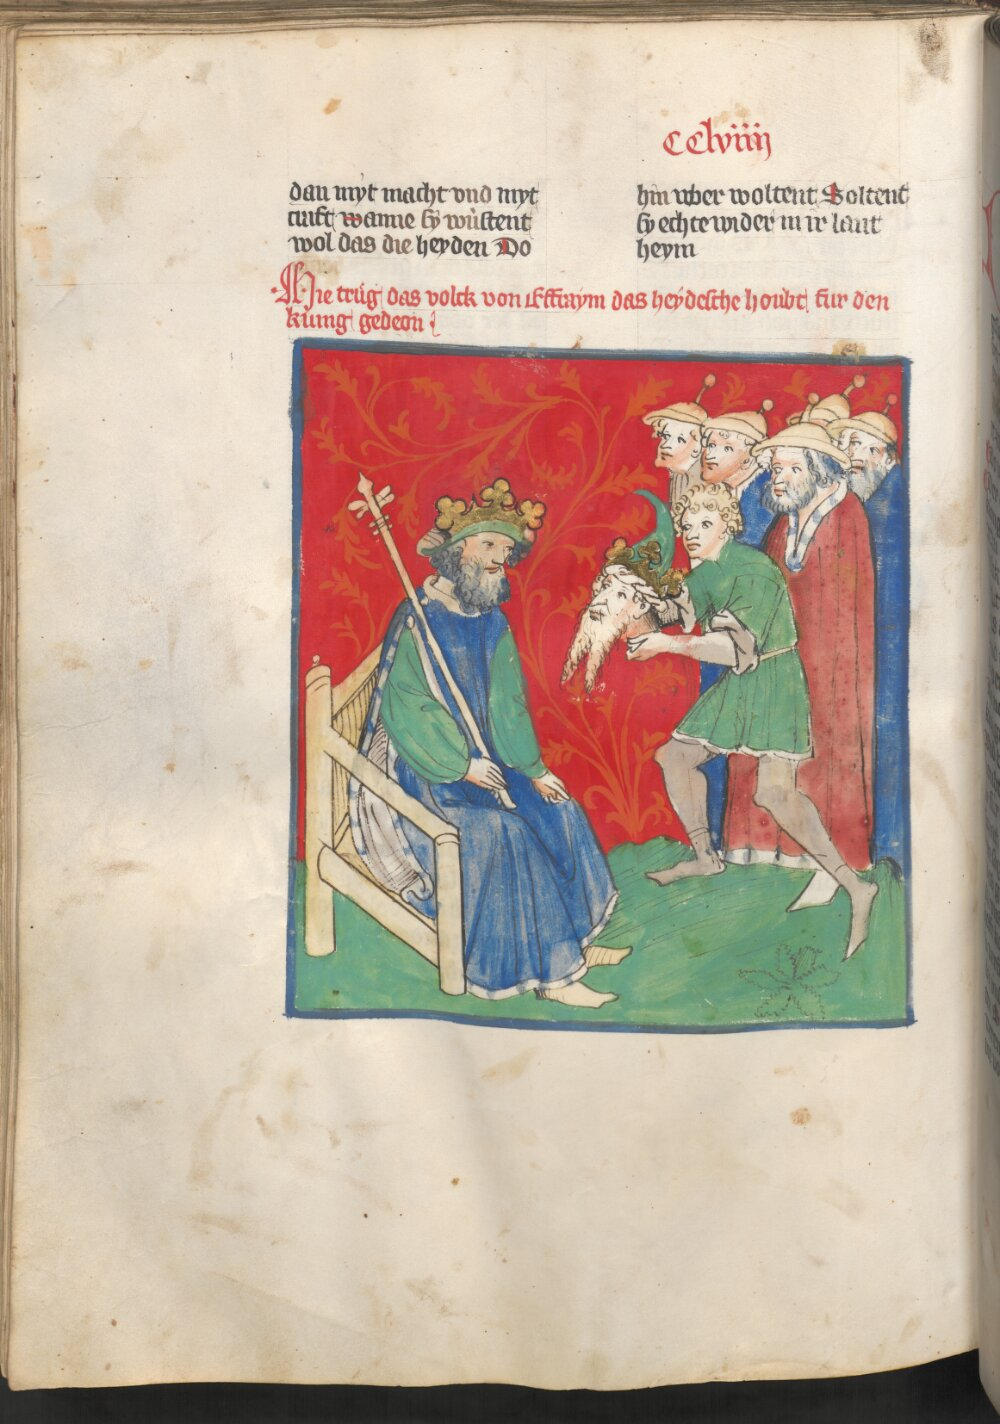 CClviiij
dan myt macht vnd myt
crift wanne sy wůstent
wol das die heyden Do
hin vber woltent Soltent
sy echte wider in ir lant
heym
Hie trůg das volck von Effraym das heydesche houbt fur den
kúnig gedeon